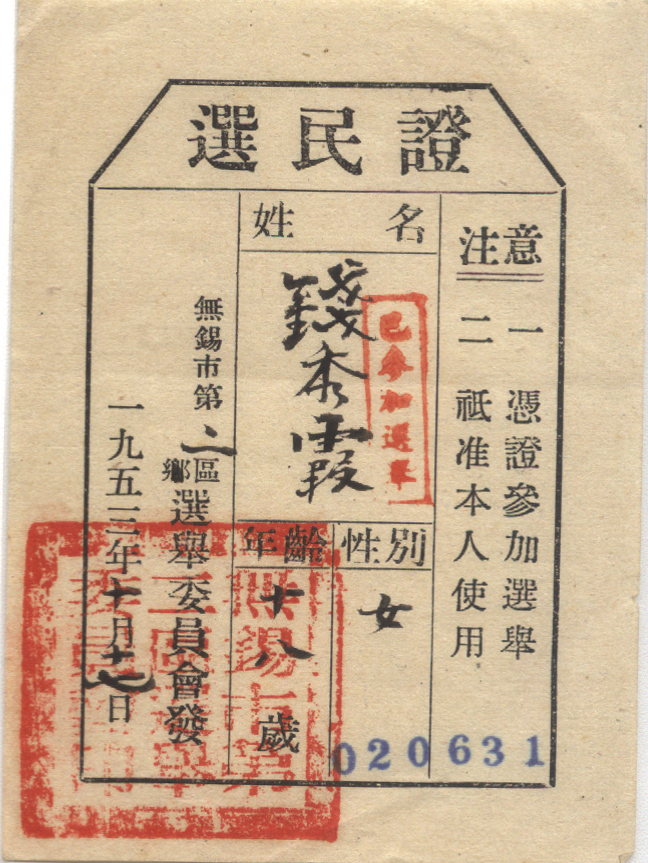 選民證
注意
一 憑證參加選舉
二 祇准本人使用
姓名
錢秀霞
已參加選舉
性別
女
年齡
十八歲
無錫市第二區鄉選舉委員會發
一九五三年十月十七日
020631